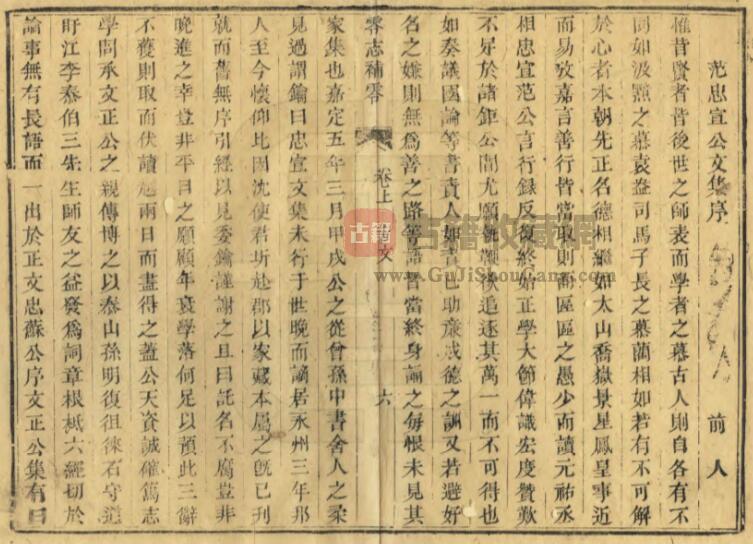 范忠宣公文集序 前人
惟昔賢者皆後世之師表而學者之慕古人則自各有不
同如汲黯之慕袁盎司馬子長之慕藺相如若有不可解
於心者本朝先正名德相繼如太山喬嶽景星鳳皇事近
而易攷嘉言善行皆當取則而區區之愚少而讀元祐丞
相忠宣范公言行録反復終始正學大節偉識宏度贊歎
不於諸鉅公間尤願執鞭欲追逐其萬一而不可得也
如奏議國論等書責人如責己助廉戒德之訓又若避好
名之嫌則無爲善之路等語皆當終身誦之每恨未見其
零志補零 卷上 文 六
家集也嘉定五年三月甲戌公之從曾孫中書舍人之柔
見過謂鑰曰忠宣文集未行于世晚而謫居永州三年邦
人至今懷仰比因沈使君圻赴郡以家藏本屬之旣已刊
就而舊無序引經以見委鑰謹謝之且曰託名不腐豈非
晚進之幸豈非平日之願顧年衰學落何足以預此三辭
不獲則取而伏讀越兩日而盡得之蓋公天資誠確篤志
學問承文正公之親傳博之以泰山孫明復徂徠石守道
盱江李泰伯三先生師友之益發爲詞章根柢六經切於
論事無有長語而一出於正文忠蘇公序文正公集有曰
古籍
古籍收藏网
www.GuJiShouCang.com